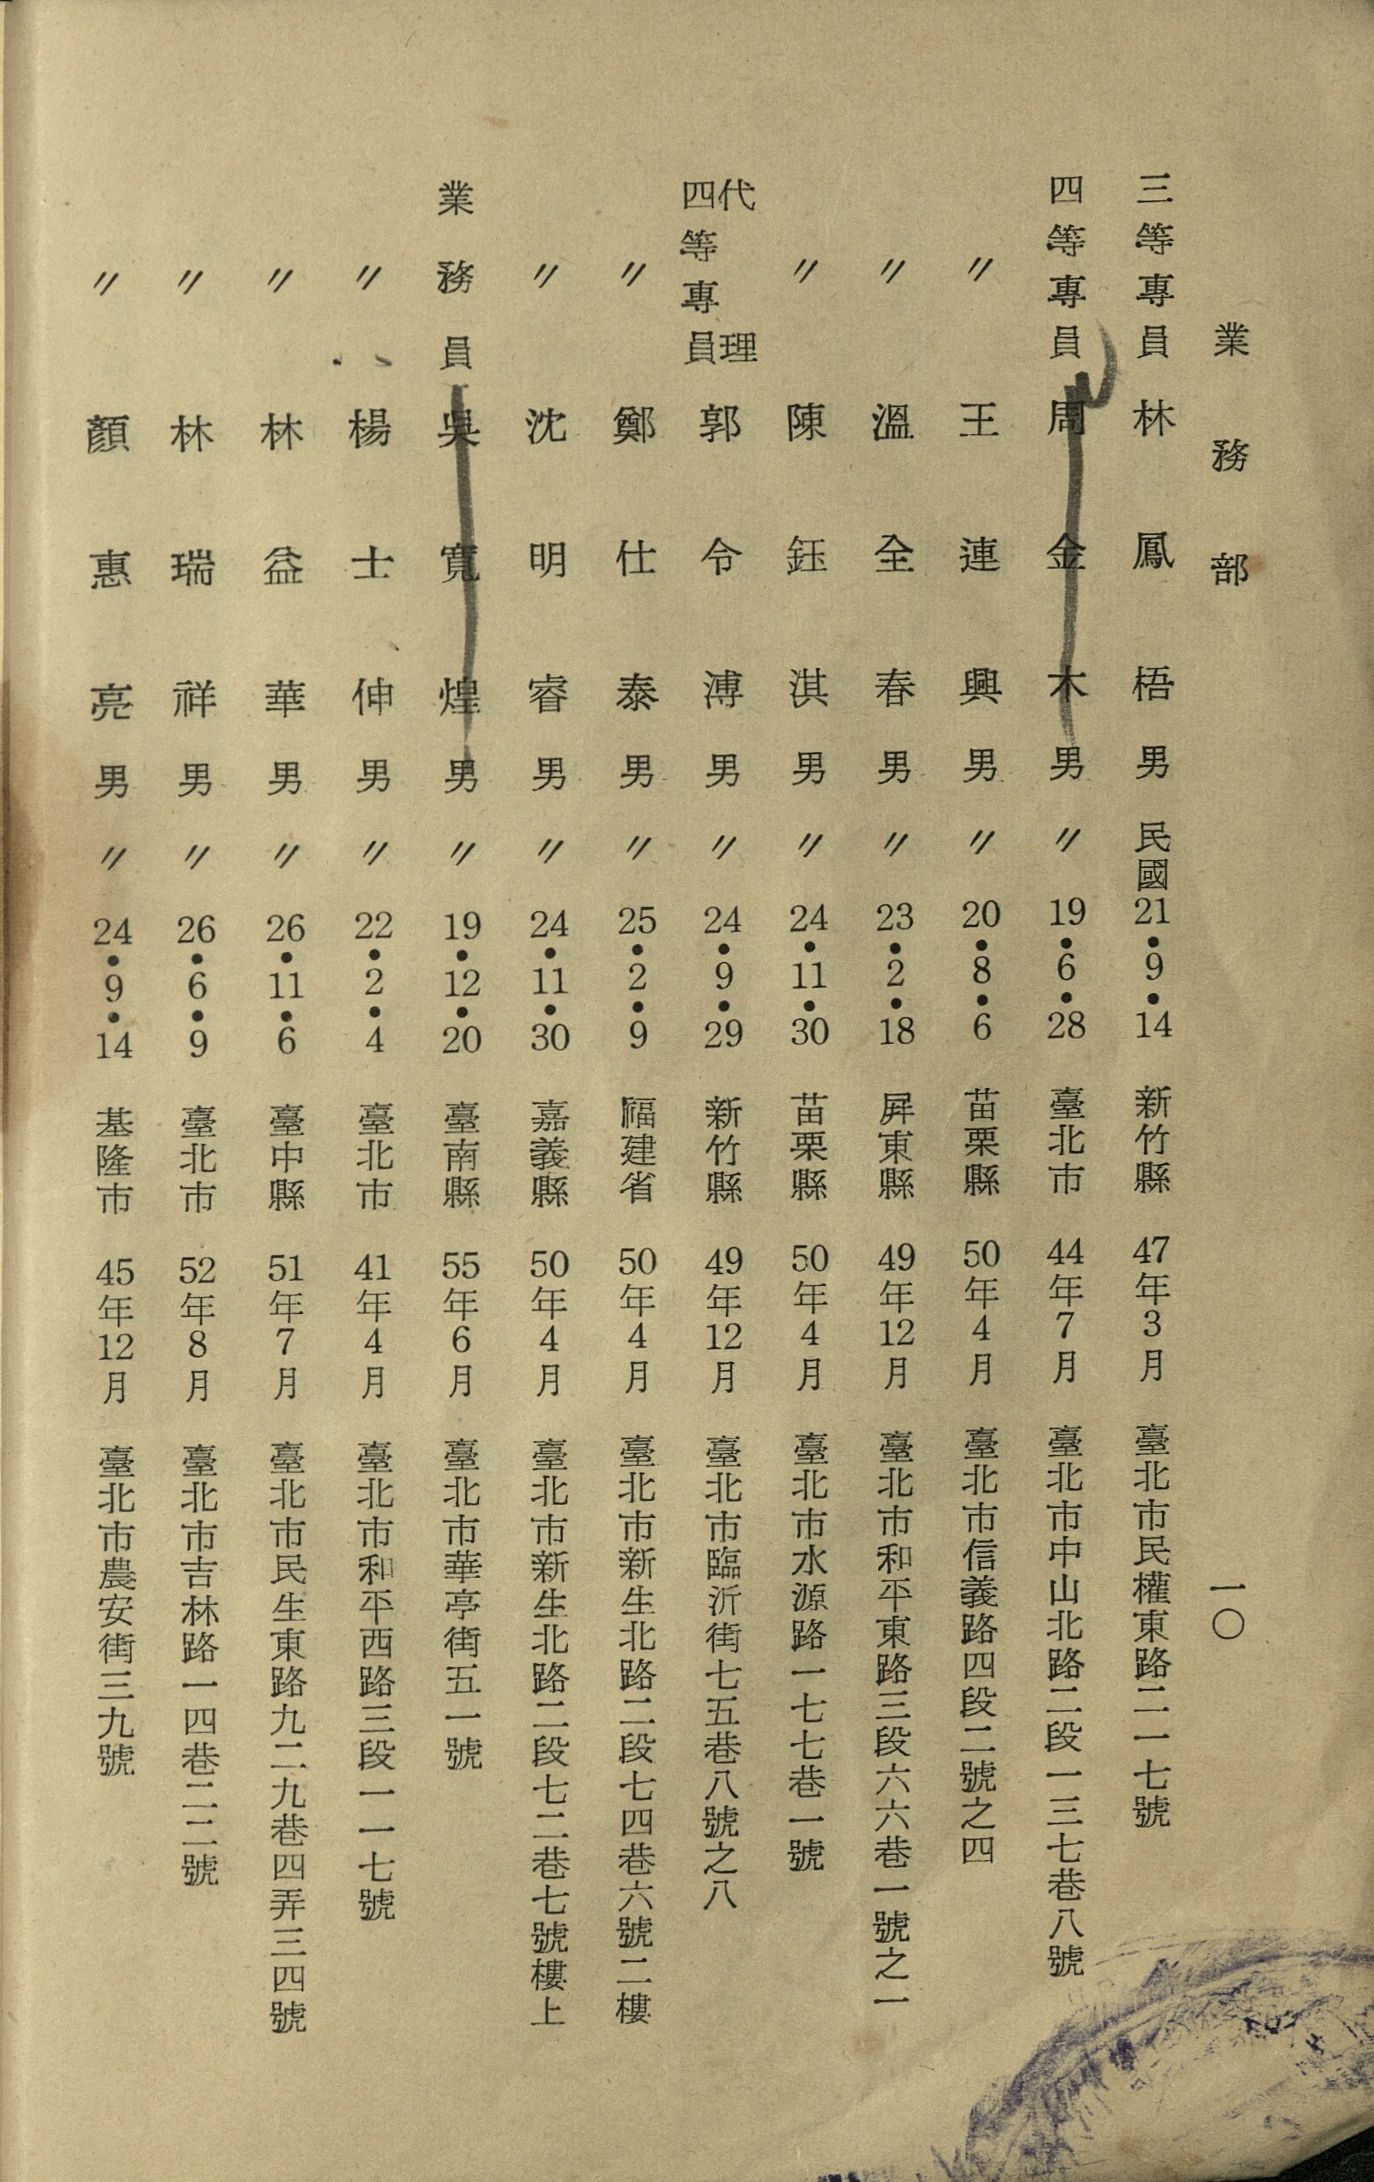 業務部
一〇
三等專員 林鳳梧 男 民國21•9•14 新竹縣 47年3月 臺北市民權東路二一七號
四等專員 周金木 男 〃 19•6•28 臺北市 44年7月 臺北市中山北路二段一三七巷八號
〃 王連興 男 〃 20•8•6 苗栗縣 50年4月 臺北市信義路四段二號之四
〃 溫全春 男 〃 23•2•18 屏東縣 49年12月 臺北市和平東路三段六六巷一號之一
〃 陳鈺淇 男 〃 24•11•30 苗栗縣 50年4月 臺北市水源路一七七巷一號
代理四等專員 郭令溥 男 〃 24•9•29 新竹縣 49年12月 臺北市臨沂街七五巷八號之八
〃 鄭仕泰 男 〃 25•2•9 福建省 50年4月 臺北市新生北路二段七四巷六號二樓
〃 沈明睿 男 〃 24•11•30 嘉義縣 50年4月 臺北市新生北路二段七二巷七號樓上
業務員 吳寬煌 男 〃 19•12•20 臺南縣 55年6月 臺北市華亭街五一號
〃 楊士伸 男 〃 22•2•4 臺北市 41年4月 臺北市和平西路三段一一七號
〃 林益華 男 〃 26•11•6 臺中縣 51年7月 臺北市民生東路九二九巷四弄三四號
〃 林瑞祥 男 〃 26•6•9 臺北市 52年8月 臺北市吉林路一四巷二二號
〃 顏惠亮 男 〃 24•9•14 基隆市 45年12月 臺北市農安街三九號